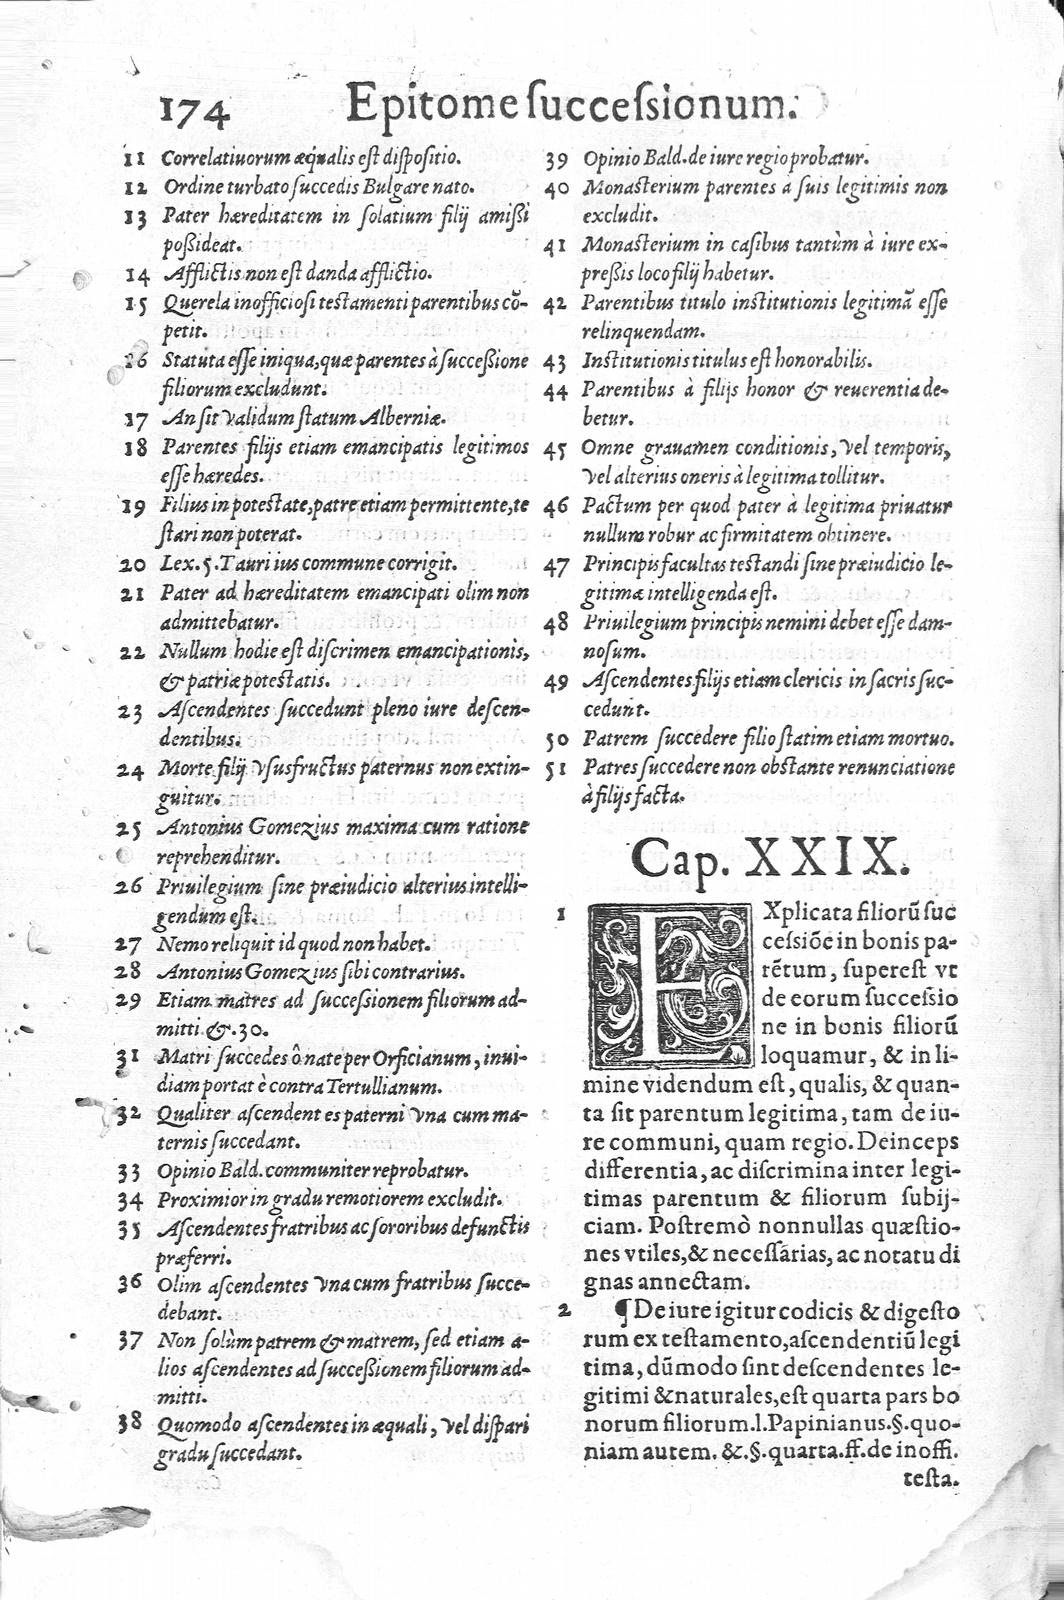 174 Epitome successionum.
11 Correlatiuorum æqualis est dispositio.
12 Ordine turbato succedis Bulgare nato.
13 Pater hæreditatem in solatium filij amissi
possideat.
14 Afflictis non est danda afflictio.
15 Querela inofficiosi testamenti parentibus cō-
petit.
16 Statuta esse iniqua, quæ parentes à successione
filiorum excludunt.
17 An sit validum statum Alberniæ.
18 Parentes filijs etiam emancipatis legitimos
esse hæredes.
19 Filius in potestate, patre etiam permittente, te
stari non poterat.
20 Lex. 5. Tauri ius commune corrigit.
21 Pater ad hæreditatem emancipati olim non
admittebatur.
22 Nullum hodie est discrimen emancipationis,
& patriæ potestatis.
23 Ascendentes succedunt pleno iure descen-
dentibus.
24 Morte filij vsusfructus paternus non extin-
guitur.
25 Antonius Gomezius maxima cum ratione
reprehenditur.
26 Priuilegium sine præiudicio alterius intelli-
gendum est.
27 Nemo reliquit id quod non habet.
28 Antonius Gomezius sibi contrarius.
29 Etiam matres ad successionem filiorum ad-
mitti &. 30.
31 Matri succedes ô nate per Orficianum, inui-
diam portat è contra Tertullianum.
32 Qualiter ascendentes paterni vna cum ma-
ternis succedant.
33 Opinio Bald. communiter reprobatur.
34 Proximior in gradu remotiorem excludit.
35 Ascendentes fratribus ac sororibus defunctis
præferri.
36 Olim ascendentes vna cum fratribus succe-
debant.
37 Non solùm patrem & matrem, sed etiam a-
lios ascendentes ad successionem filiorum ad-
mitti.
38 Quomodo ascendentes in æquali, vel dispari
gradu succedant.
39 Opinio Bald. de iure regio probatur.
40 Monasterium parentes a suis legitimis non
excludit.
41 Monasterium in casibus tantùm à iure ex-
pressis loco filij habetur.
42 Parentibus titulo institutionis legitimā esse
relinquendam.
43 Institutionis titulus est honorabilis.
44 Parentibus à filijs honor & reuerentia de-
betur.
45 Omne grauamen conditionis, vel temporis,
vel alterius oneris à legitima tollitur.
46 Pactum per quod pater à legitima priuatur
nullum robur ac firmitatem obtinere.
47 Principis facultas testandi sine præiudicio le-
gitimæ intelligenda est.
48 Priuilegium principis nemini debet esse dam-
nosum.
49 Ascendentes filijs etiam clericis in sacris suc-
cedunt.
50 Patrem succedere filio statim etiam mortuo.
51 Patres succedere non obstante renunciatione
à filijs facta.
Cap. XXIX.
1 EXplicata filiorū suc
cessiōe in bonis pa-
rētum, superest vt
de eorum successio
ne in bonis filiorū
loquamur, & in li-
mine videndum est, qualis, & quan-
ta sit parentum legitima, tam de iu-
re communi, quam regio. Deinceps
differentia, ac discrimina inter legi-
timas parentum & filiorum subij-
ciam. Postremò nonnullas quæstio-
nes vtiles, & necessarias, ac notatu di
gnas annectam.
2 ¶ De iure igitur codicis & digesto
rum ex testamento, ascendentiū legi
tima, dūmodo sint descendentes le-
gitimi & naturales, est quarta pars bo
norum filiorum. l. Papinianus. §. quo-
niam autem. &. §. quarta. ff. de inoffi.
testa.